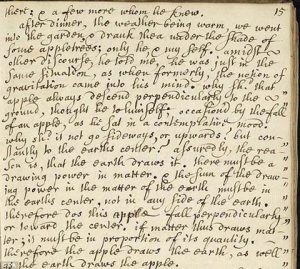 there; & a few more whom he knew. 15
after dinner, the weather being warm, we went
into the garden, & drank thea under the shade of
some appletrees; only he, & my self. amidst
other discourse, he told me, he was just in the
same situation, as when formerly, the notion of
gravitation came into his mind. why sh.d that
apple always descend perpendicularly to the
ground, thought he to himself; occasion'd by the fall
of an apple, as he sat in a contemplative mood.
why sh.d it not go sideways, or upwards? but con-
stantly to the earths center? assuredly, the rea-
son is, that the earth draws it. there must be a
drawing power in matter. & the sum of the draw-
ing power in the matter of the earth must be in
the earths center, not in any side of the earth.
therefore dos this apple fall perpendicularly,
or toward the center. if matter thus draws mat-
ter; it must be in proportion of its quantity.
therefore the apple draws the earth, as well
as the earth draws the apple.